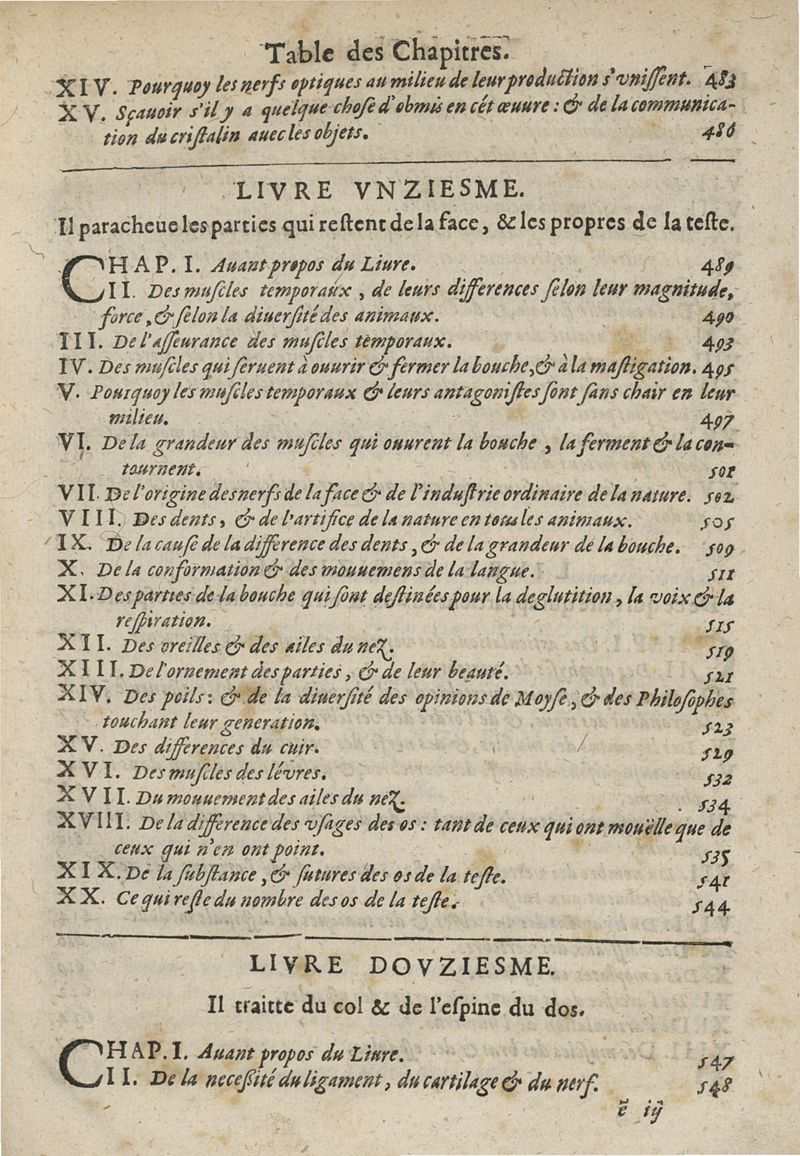 Table des Chapitres.
XIV. Pourquoy les nerfs optiques au milieu de leur production s'vnissent. 483
XV. Sçauoir s'il y a quelque chose d'obmis en cét œuure : & de la communica-
tion du cristalin auec les objets. 486
LIVRE VNZIESME.
Il paracheue les parties qui restent de la face, & les propres de la teste.
CHAP. I. Auant propos du Liure. 489
II. Des muscles temporaux, de leurs differences selon leur magnitude,
force, & selon la diuersité des animaux. 490
III. De l'asseurance des muscles temporaux. 493
IV. Des muscles qui seruent à ouurir & fermer la bouche, & à la mastigation. 495
V. Pourquoy les muscles temporaux & leurs antagonistes sont sans chair en leur
milieu. 497
VI. De la grandeur des muscles qui ouurent la bouche, la ferment & la con-
tournent. 501
VII. De l'origine des nerfs de la face & de l'industrie ordinaire de la nature. 502
VIII. Des dents, & de l'artifice de la nature en tous les animaux. 505
IX. De la cause de la difference des dents, & de la grandeur de la bouche. 509
X. De la conformation & des mouuemens de la langue. 511
XI. Des parties de la bouche qui sont destinées pour la deglutition, la voix & la
respiration. 515
XII. Des oreilles & des ailes du nez. 519
XIII. De l'ornement des parties, & de leur beauté. 521
XIV. Des poils : & de la diuersité des opinions de Moyse, & des Philosophes
touchant leur generation. 523
XV. Des differences du cuir. 529
XVI. Des muscles des lévres. 532
XVII. Du mouuement des ailes du nez. 534
XVIII. De la difference des vsages des os : tant de ceux qui ont mouëlle que de
ceux qui n'en ont point. 535
XIX. De la substance, & sutures des os de la teste. 541
XX. Ce qui reste du nombre des os de la teste. 544
LIVRE DOVZIESME.
Il traitte du col & de l'espine du dos.
CHAP. I. Auant propos du Liure. 547
II. De la necessité du ligament, du cartilage & du nerf. 548
ë iij